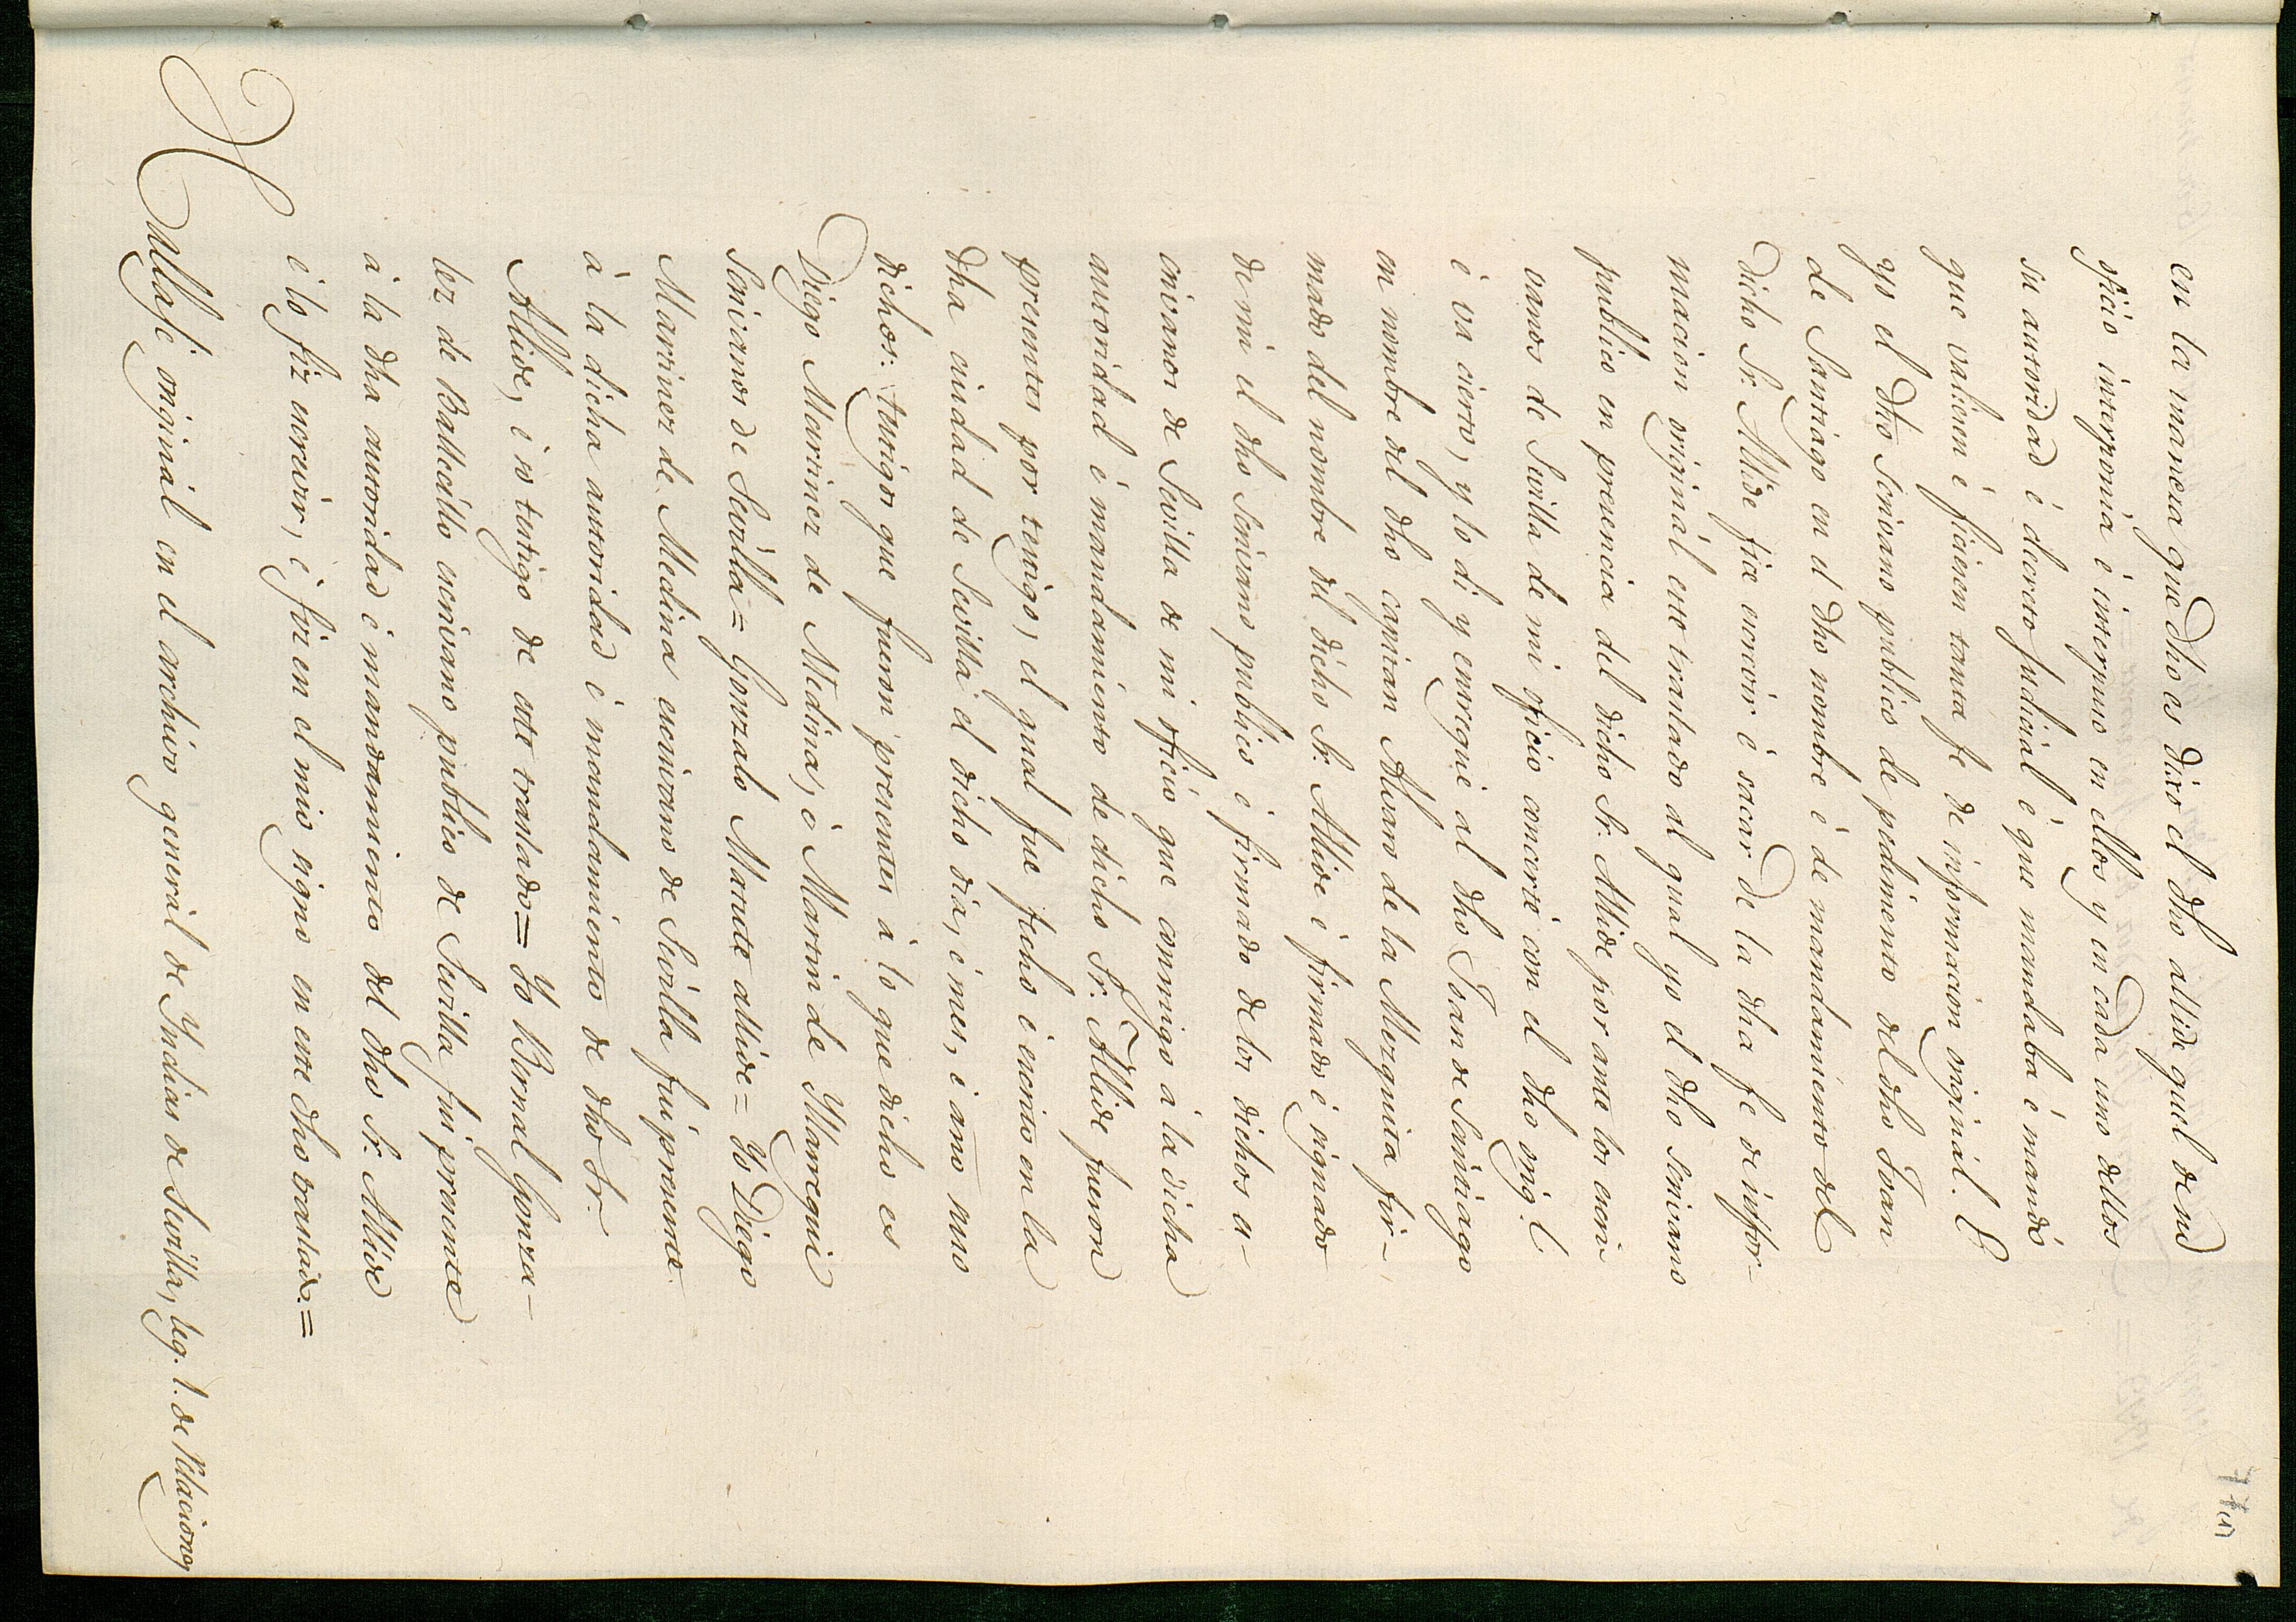 en la manera que dho es dixo el dho allide quel de su
oficio interponia é interpuso en ellos y en cada uno dellos
su autoridad é decreto judicial é que mandaba é mandó
que valiesen é ficiesen tanta fe de informacion original. E
yo el dho Scrivano publico de pedimento del dho Joan
de Santiago en el dho nombre é de mandamiento del
dicho Sr. Allide fice escrevir é sacar de la dha fe de infor-
macion original este translado al qual yo el dho scrivano
publico en presencia del dicho Sr. Allide por ante los escri-
vanos de Sevilla de mi oficio concerté con el dho orig.l
é va cierto, y lo di y entregué al dho Joan de Santiago
en nombre del dho capitan Alvaro de la Mezquita fir-
mado del nombre del dicho Sr. Allide é firmado é signado
de mi el dho Scrivano publico é firmado de los dichos es-
crivanos de Sevilla de mi oficio que conmigo á la dicha
autoridad é mandamiento de dicho Sr. Allide fueron
presentes por testigos, el qual fue fecho é escrito en la
dha ciudad de Sevilla el dicho dia, é mes, é año suso
dichos: testigos que fueron presentes á lo que dicho es
Diego Martinez de Medina, é Martin de Yllarregui
Scrivanos de Sevilla = Gonzalo Marute allide = Yo Diego
Martinez de Medina escrivano de Sevilla fui presente
á la dicha autoridad é mandamiento de dho Sr.
Allide, é so testigo de este traslado = Yo Bernal Gonza-
lez de Vallecillo escrivano publico de Sevilla fui presente
á la dha autoridad é mandamiento del dho Sr. Allide
é lo fiz escrevir, é fiz en el mio signo en este dho traslado. =
Hallase original en el archivo general de Yndias de Sevilla, leg. 1. de Relaciones